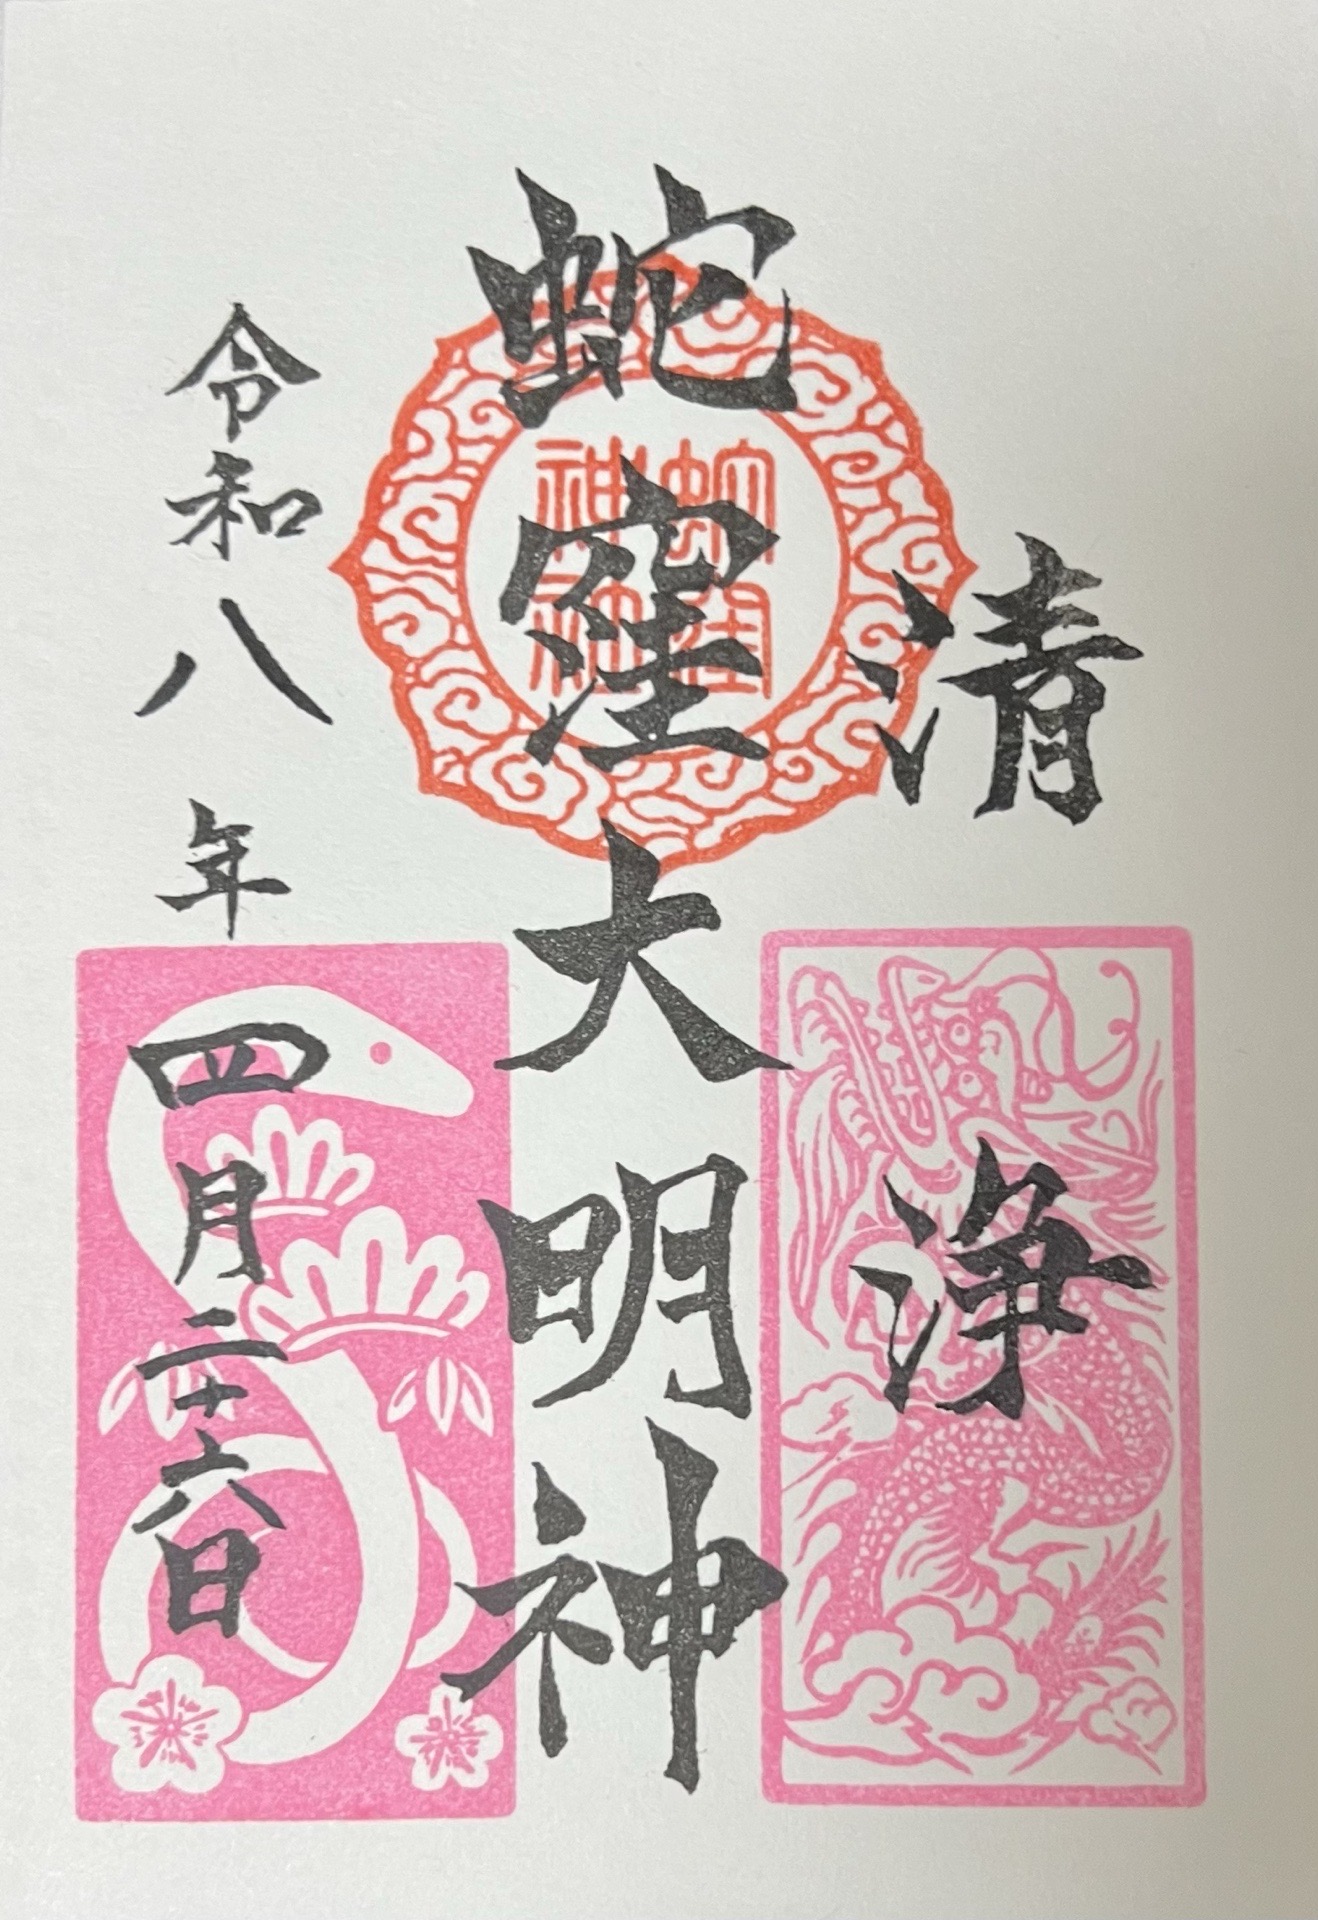 清浄
蛇窪大明神
蛇窪
神社
令和八年四月二十六日